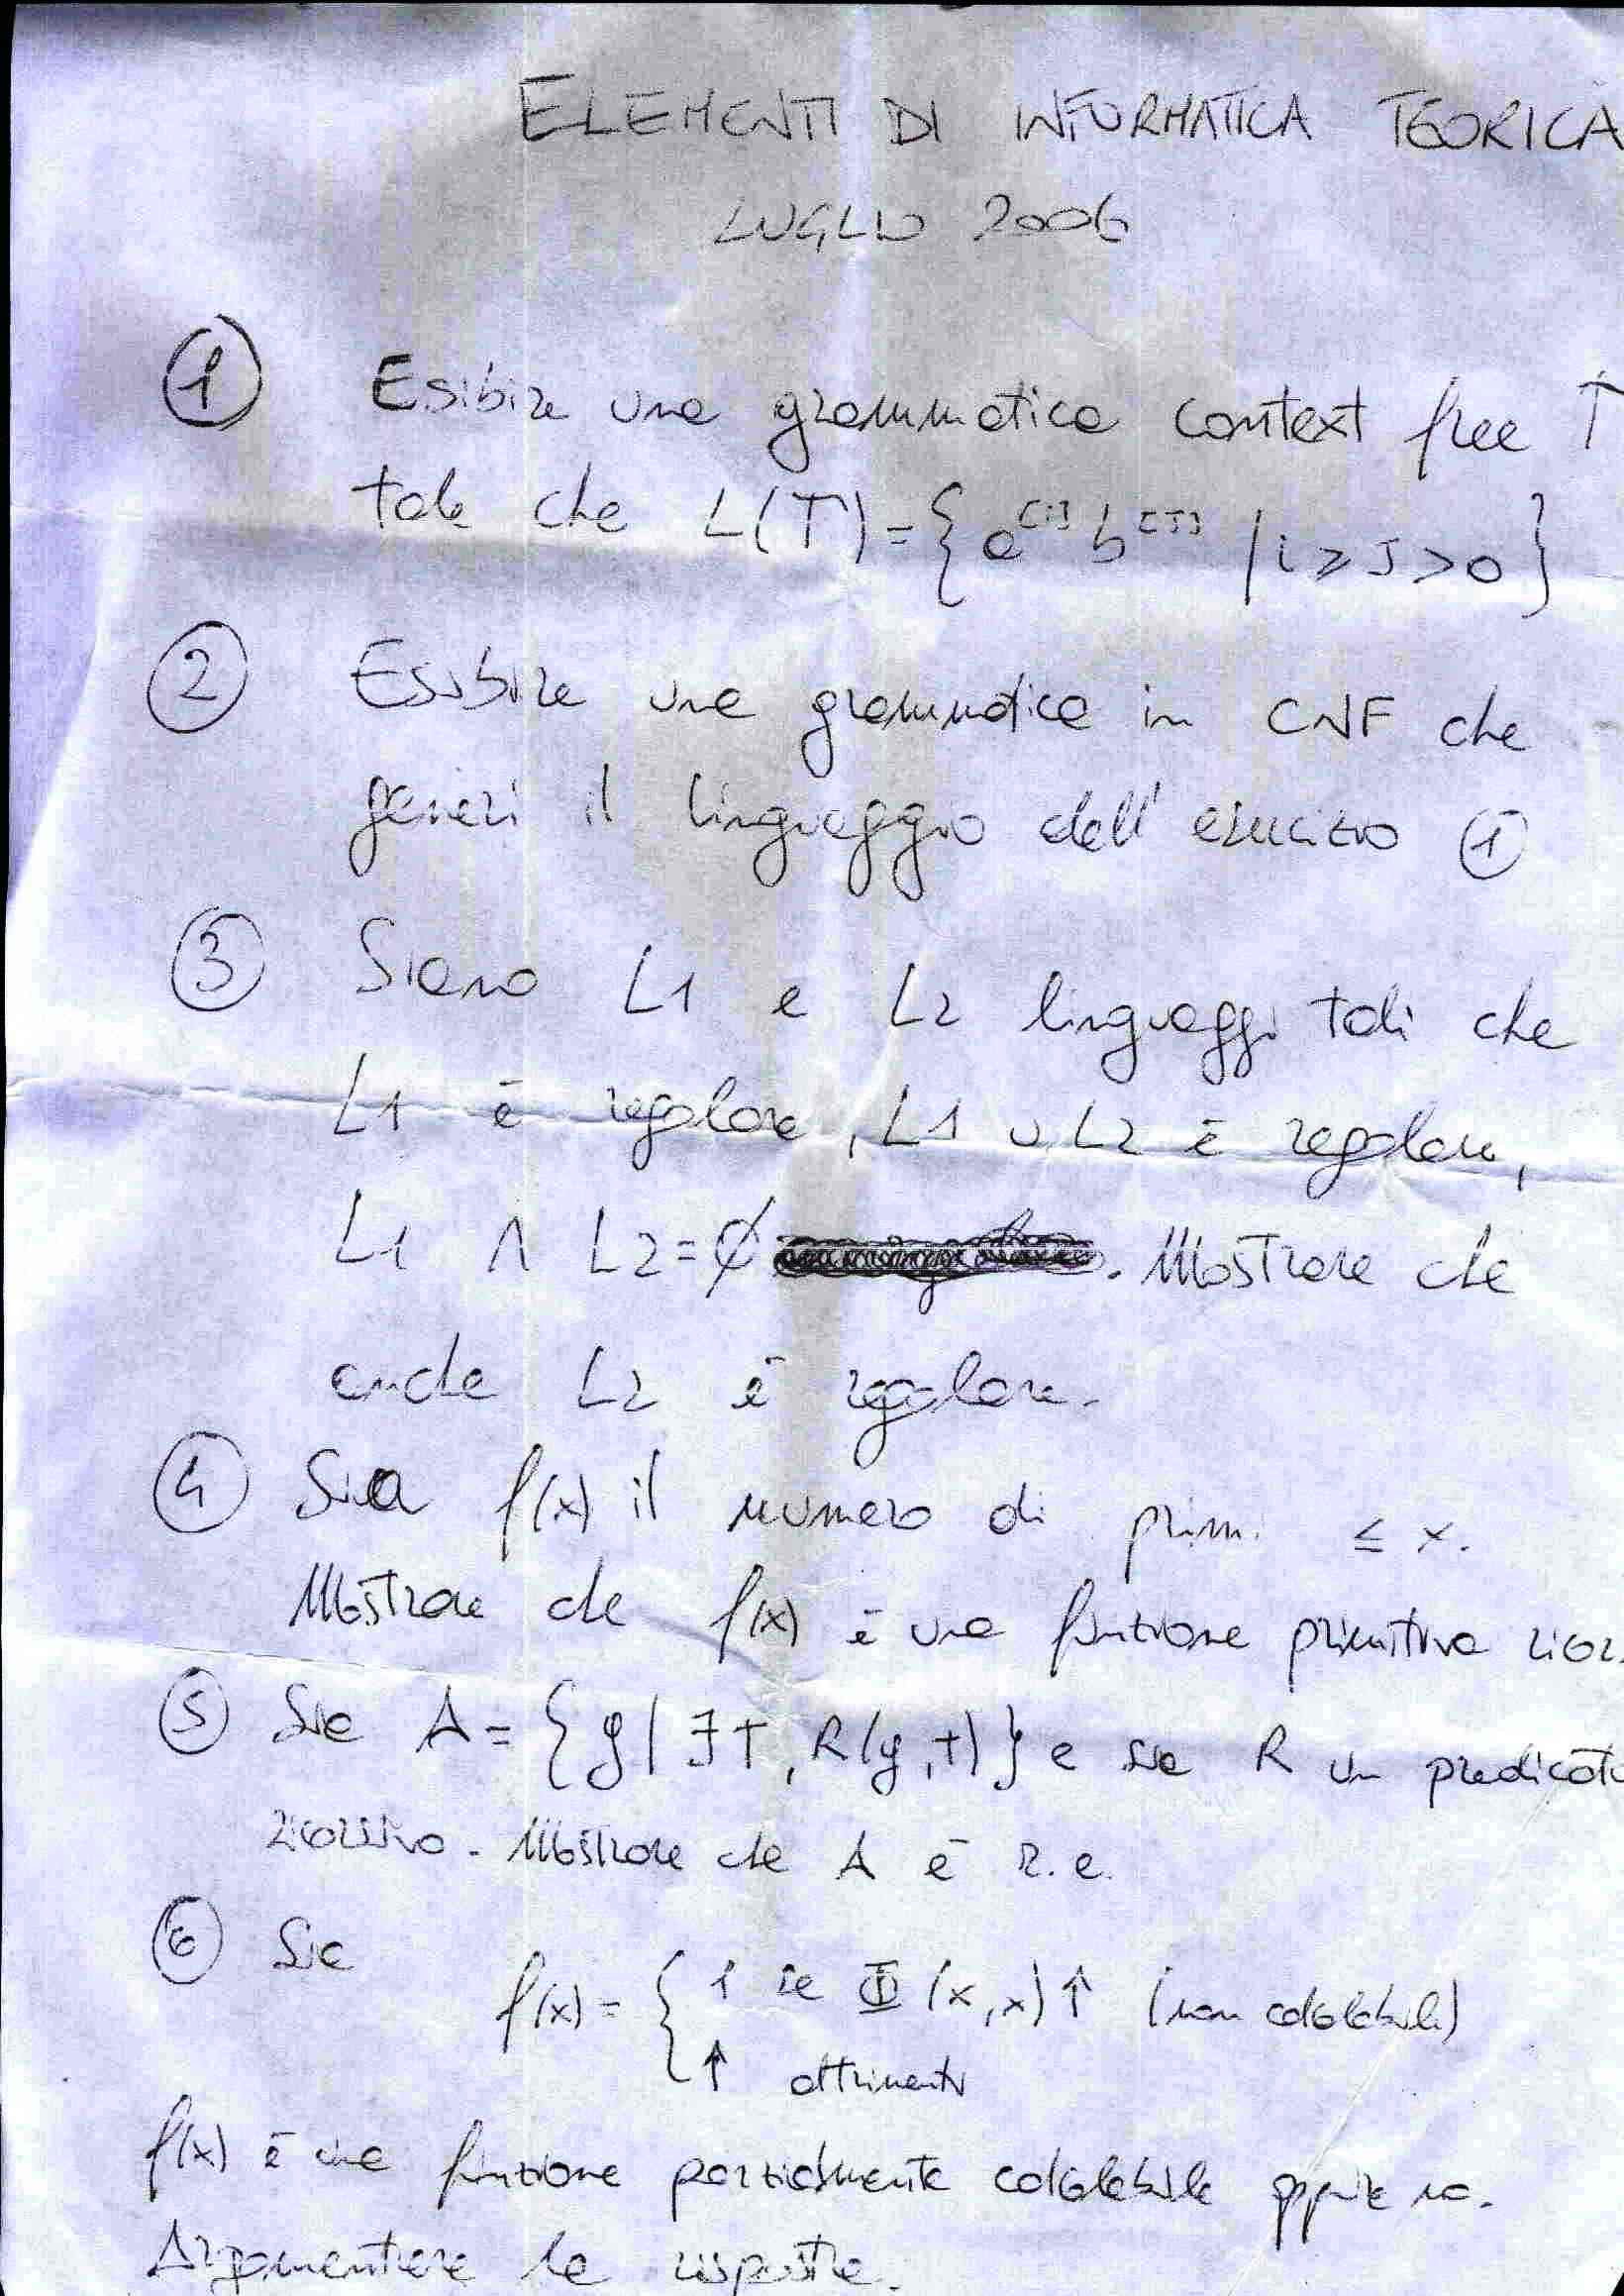 ELEMENTI DI INFORMATICA TEORICA
LUGLIO 2006
① Esibire una grammatica context free Γ
tale che L(Γ) = { a^[i] b^[J] | i ≥ J > 0 }
② Esibire una grammatica in CNF che
generi il linguaggio dell' esercizio ①
③ Siano L1 e L2 linguaggi tali che
L1 è regolare, L1 ∪ L2 è regolare,
L1 ∩ L2 = ∅ . Mostrare che
anche L2 è regolare.
④ Sia f(x) il numero di primi ≤ x.
Mostrare che f(x) è una funzione primitiva ricor.
⑤ Sia A = { y | ∃ t, R(y, t) } e sia R un predicato
ricorsivo. Mostrare che A è r.e.
⑥ Sia
f(x) = { 1 se Φ(x, x) ↑ (non calcolabile)
↑ altrimenti
f(x) è una funzione parzialmente calcolabile oppure no.
Argomentare la risposta.